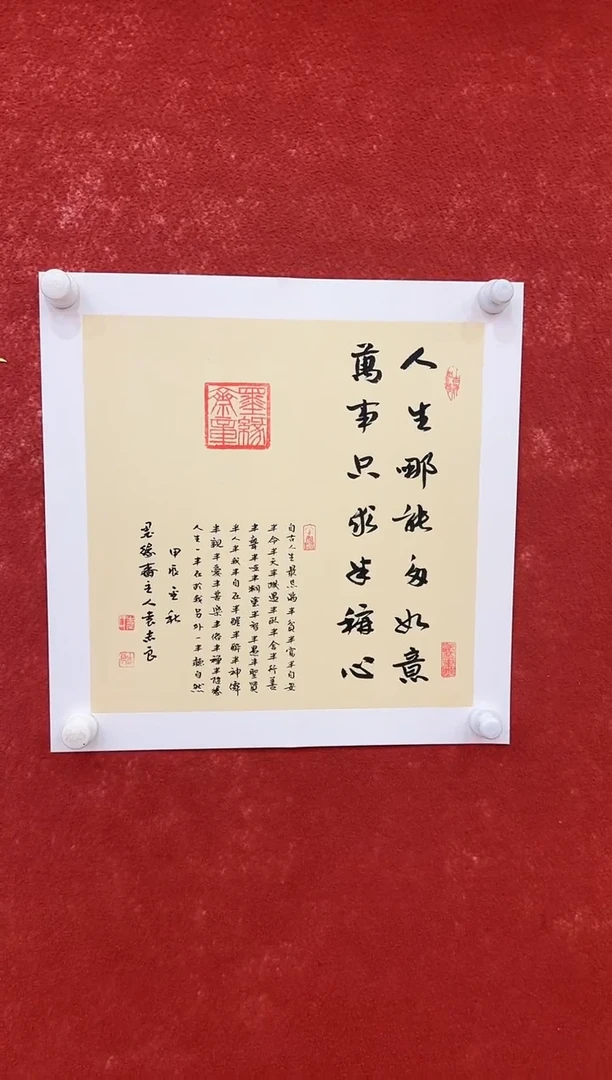 人生哪能多如意
萬事只求半稱心
自古人生最忌滿半貧半富半自安
半命半天半機遇半取半舍半行善
半聾半啞半糊塗半智半愚半聖賢
半人半我半自在半醒半醉半神僊
半親半愛半苦樂半俗半禪半隨緣
人生一半在於我另外一半聽自然
甲辰秋
墨緣齋主人袁志良
墨緣齋